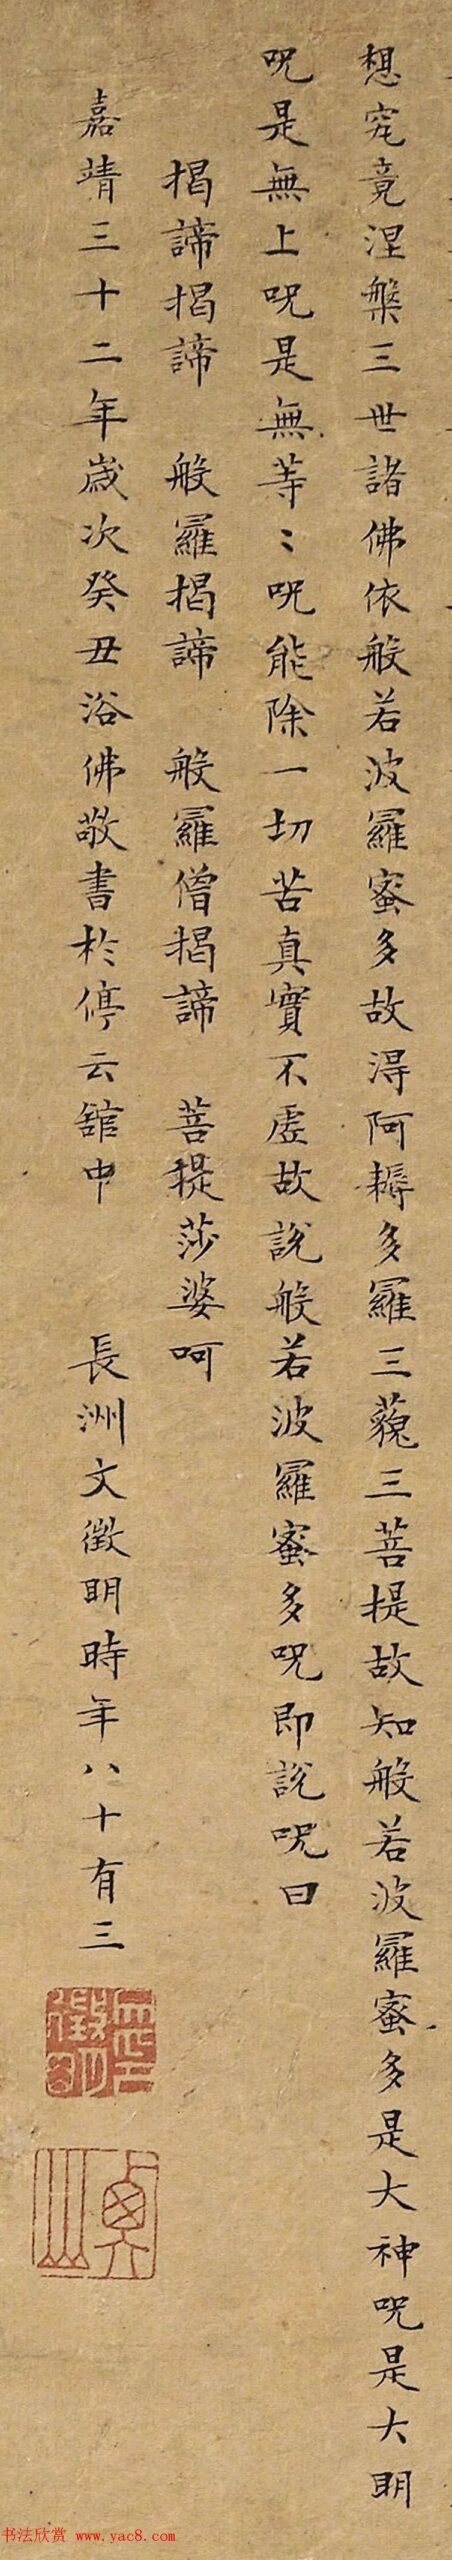 想究竟涅槃三世諸佛依般若波羅蜜多故得阿耨多羅三藐三菩提故知般若波羅蜜多是大神呪是大明
呪是無上呪是無等〻呪能除一切苦真實不虛故說般若波羅蜜多呪即說呪曰
揭諦揭諦 般羅揭諦 般羅僧揭諦 菩提莎婆呵
嘉靖三十二年歲次癸丑浴佛敬書於停云舘中 長洲文徵明時年八十有三
書法欣赏 www.yac8.com